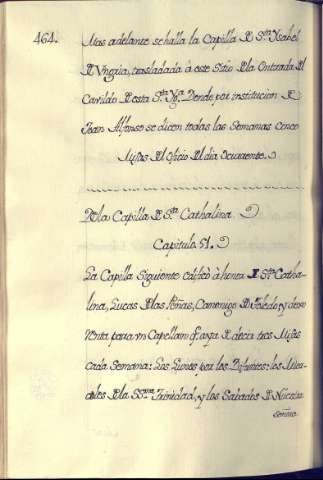 464.
Mas adelante se halla la Capilla D Sta Ysabel
D Vngria, trasladada à este Sitio D la Entrada Dl
Cavildo D esta Sta Yga Donde por institucion D
Joan Alfonso se dicen todas las Semanas cinco
Misas Dl Oficio Dl dia Ocurrente.
D la Capilla D Sta Cathalina.
Capitulo 51.
La Capilla Siguiente edificò à honra D Sta Catha-
lina, Lucas D las Peñas, Canonigo D Toledo, y dexo
Renta para vn Capellan q̃ aya D decir tres Misas
cada Semana: Los Lunes por los Difuntos: los Mier-
coles D la SSma Trinidad, y los Sabados D Nuestra
Señora